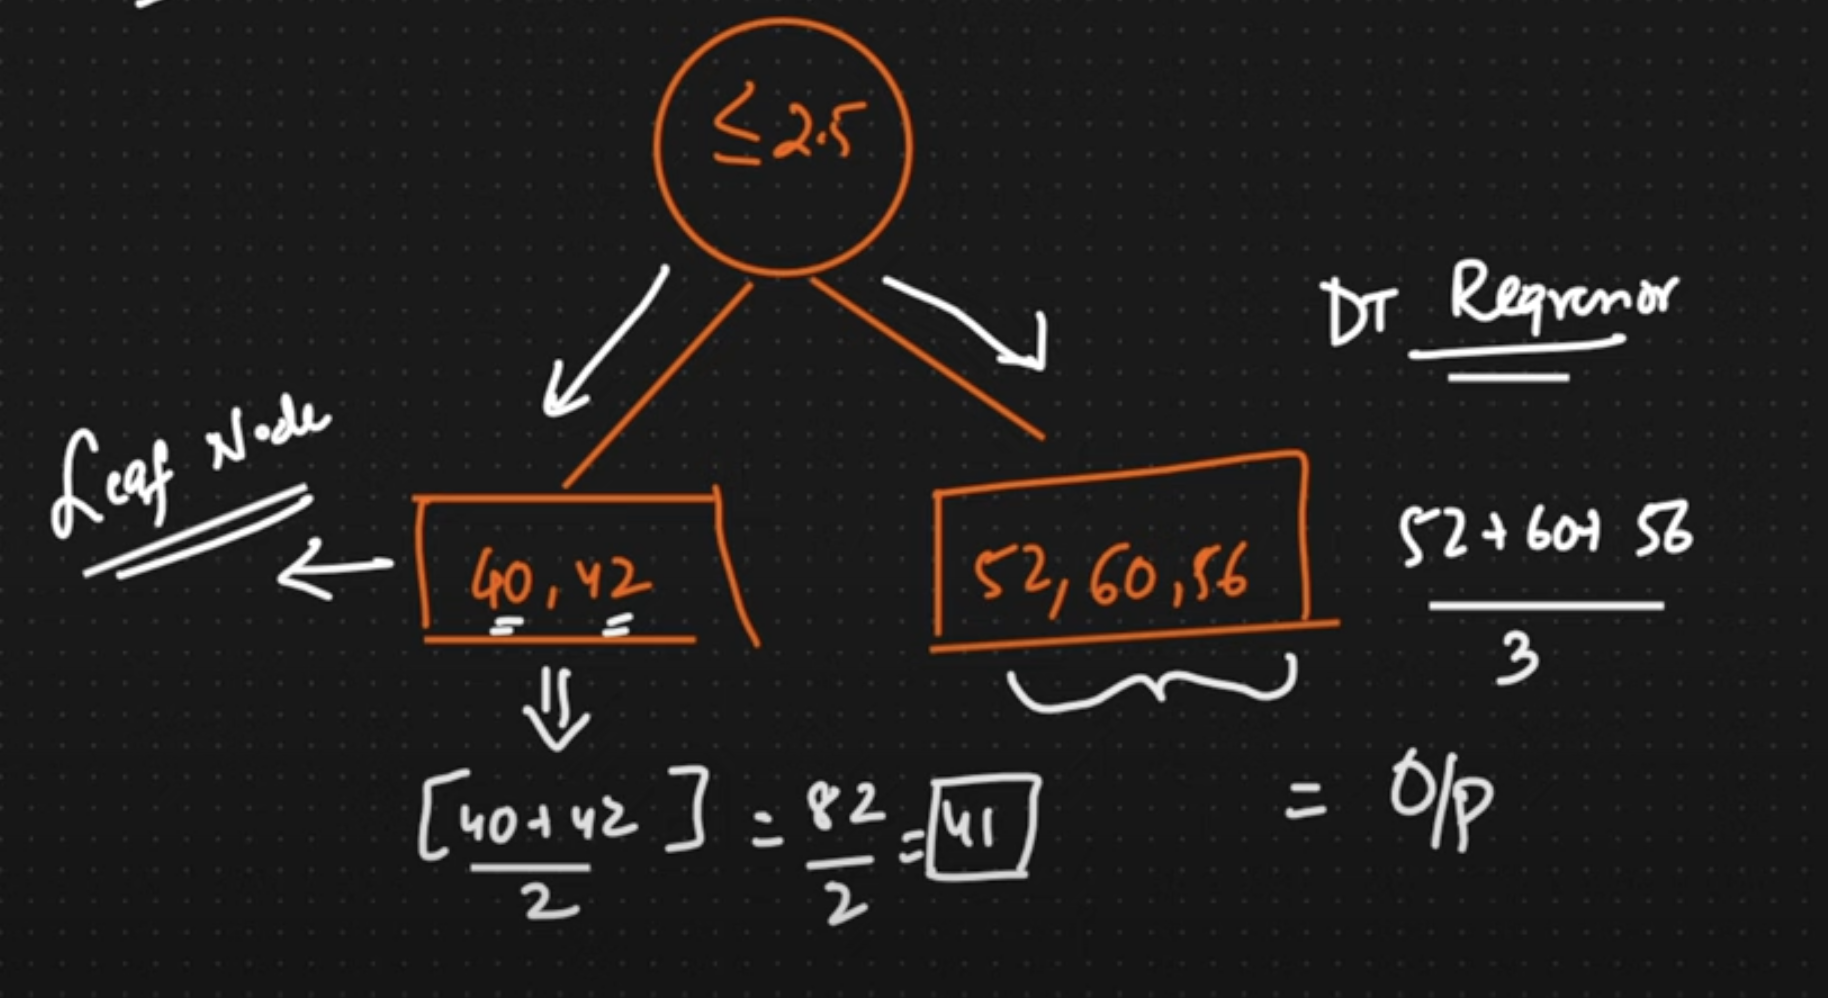 ≤ 2.5
DT Regressor
Leaf Node
40, 42
52, 60, 56
52 + 60 + 56
3
[40 + 42
2] = 82
2 = 41
= O/p